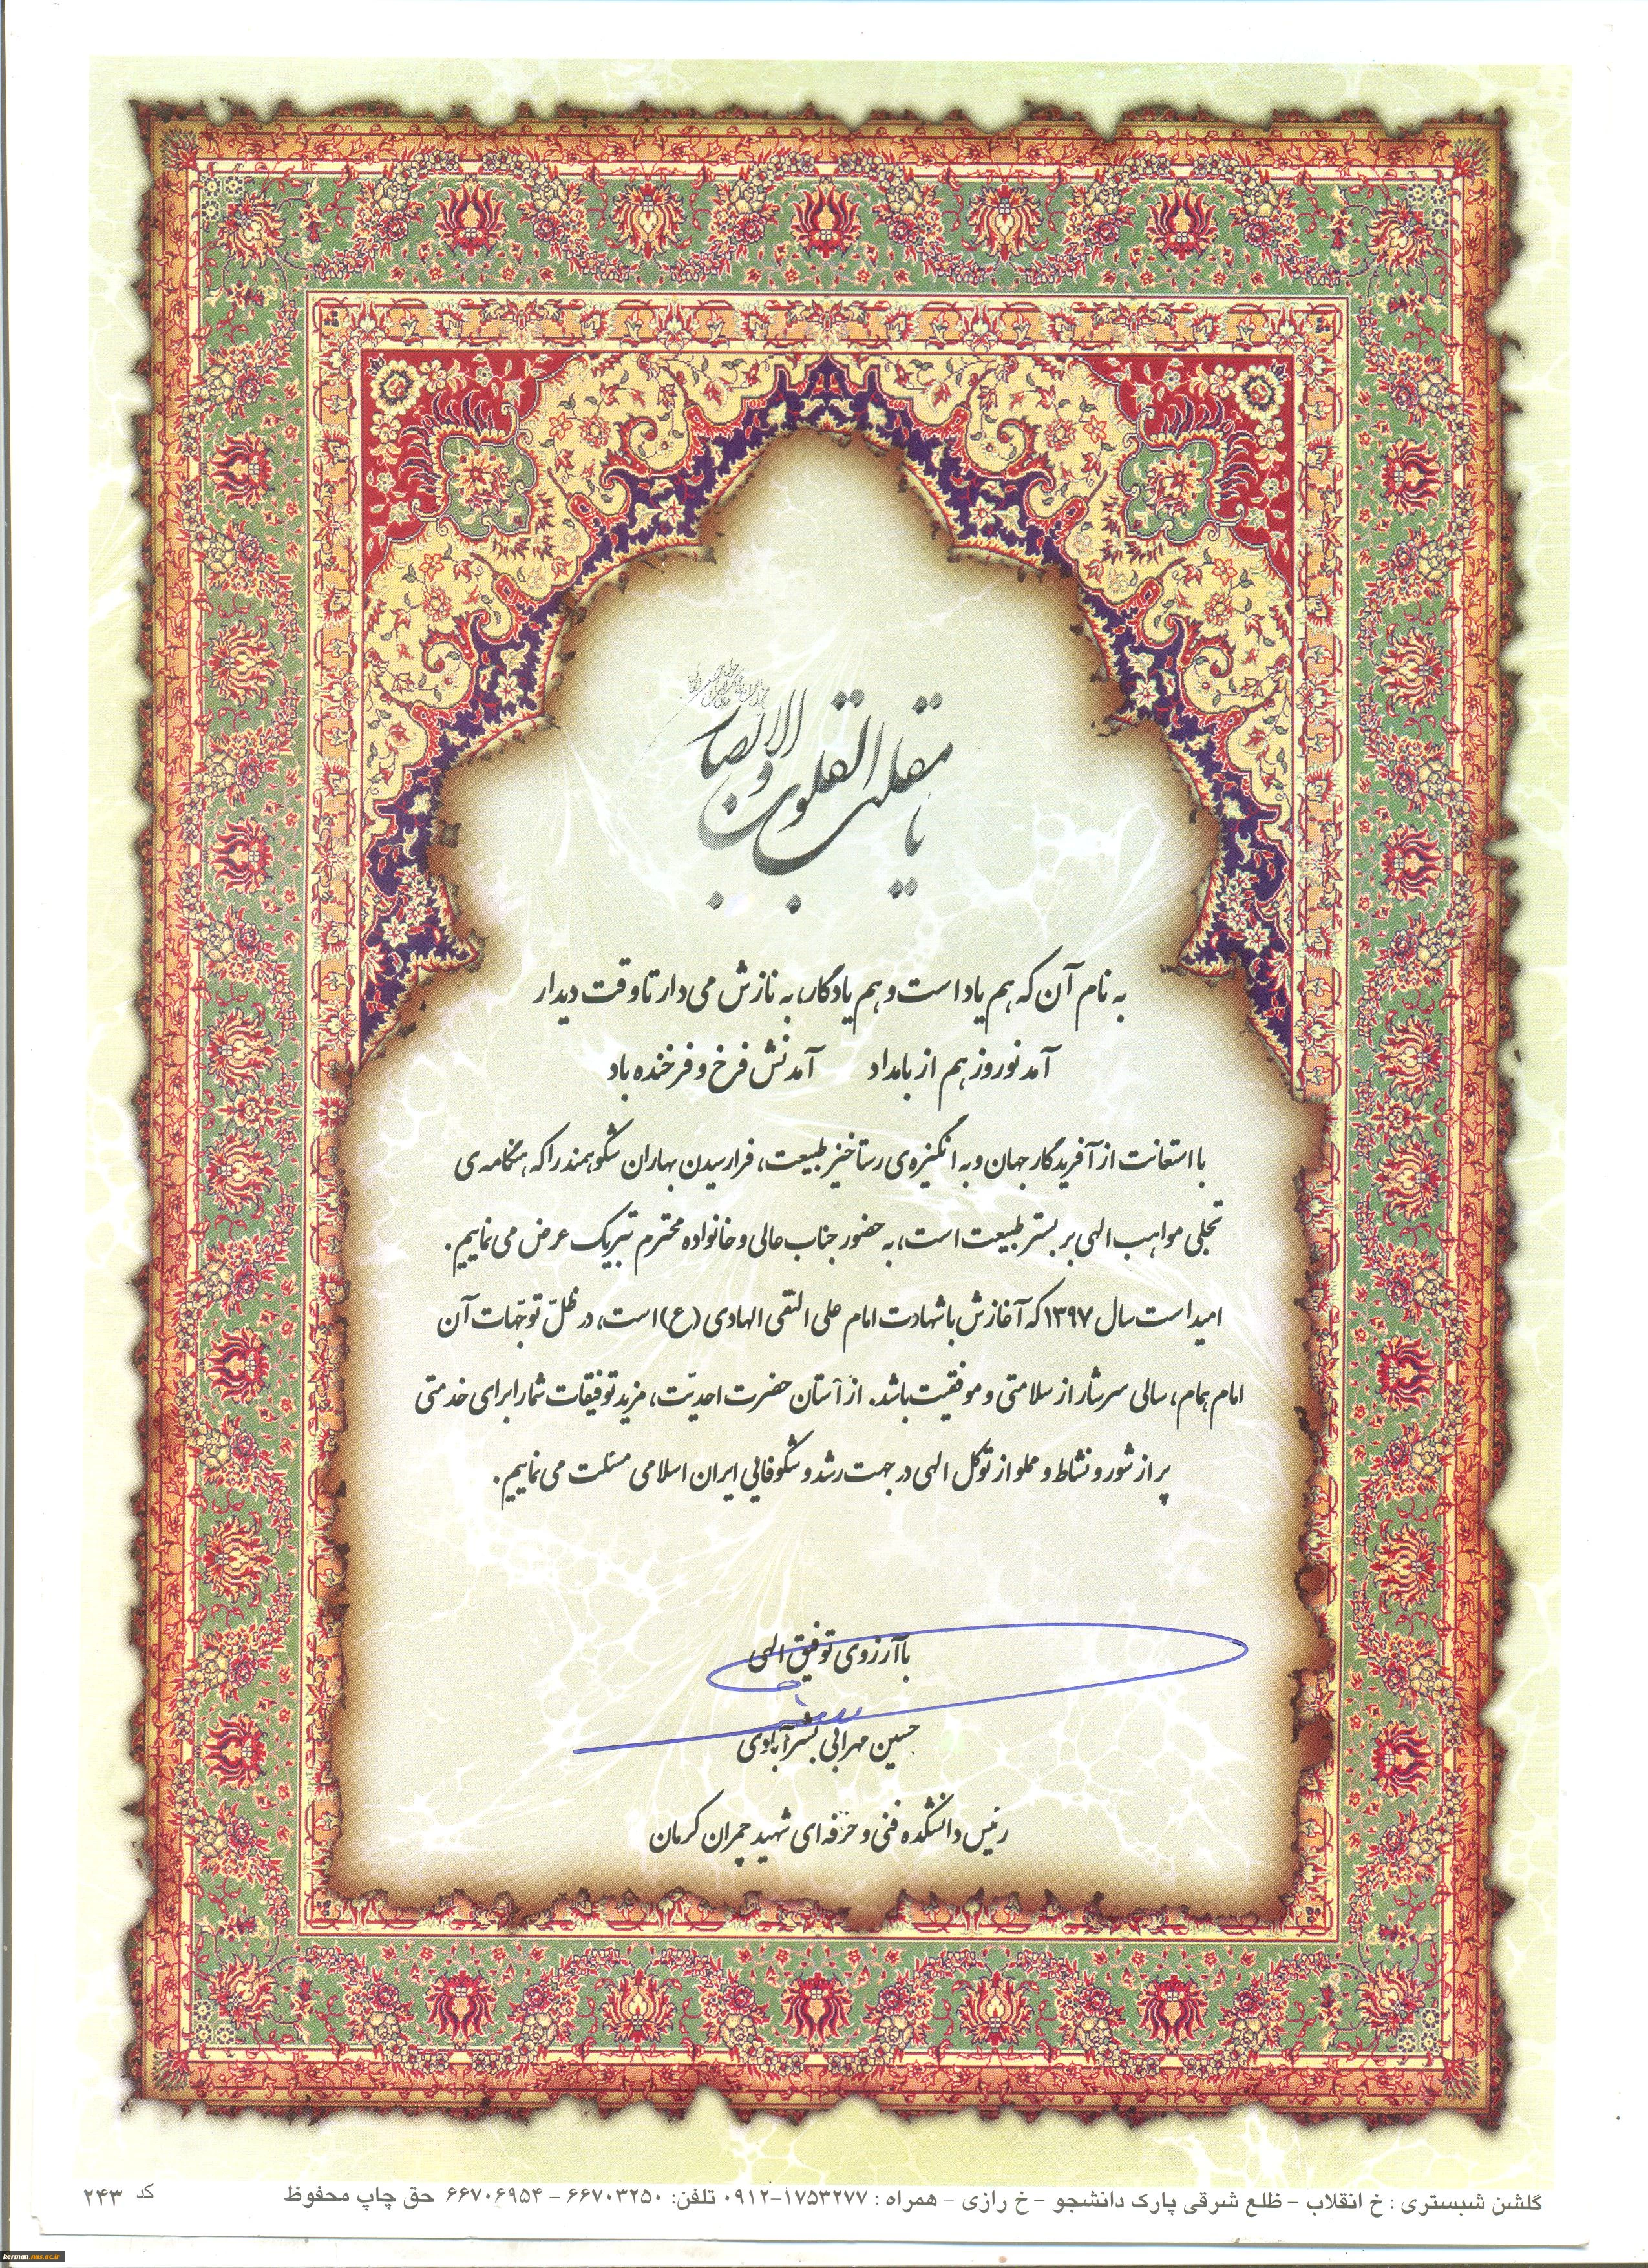 یا مقلب القلوب و الابصار
به نام آن که هم یاد است و هم یادگار، به نازش می‌دار تا وقت دیدار
آمد نوروز هم از بامداد آمدنش فرخ و فرخنده باد
با استعانت از آفریدگار جهان و به انگیزه‌ی رستاخیز طبیعت، فرارسیدن بهاران شکوهمند را که هنگامه‌ی
تجلی مواهب الهی بر بستر طبیعت است، به حضور جناب عالی و خانواده محترم تبریک عرض می‌نماییم.
امید است سال ۱۳۹۷ که آغازش با شهادت امام علی النقی الهادی (ع) است، در ظلّ توجّهات آن
امام همام، سالی سرشار از سلامتی و موفقیت باشد. از آستان حضرت احدیّت، مزید توفیقات شما را برای خدمتی
پر از شور و نشاط و مملو از توکل الهی در جهت رشد و شکوفائی ایران اسلامی مسئلت می‌نماییم.
با آرزوی توفیق الهی
حسین مهرابی بشرآبادی
رئیس دانشکده فنی و حرفه ای شهید چمران کرمان
گلشن شبستری : خ انقلاب - ظلع شرقی پارک دانشجو - خ رازی - همراه : ۱۷۵۳۲۷۷-۰۹۱۲ تلفن: ۶۶۷۰۳۲۵۰ - ۶۶۷۰۶۹۵۴ حق چاپ محفوظ
کد ۲۴۳
kerman.nus.ac.ir